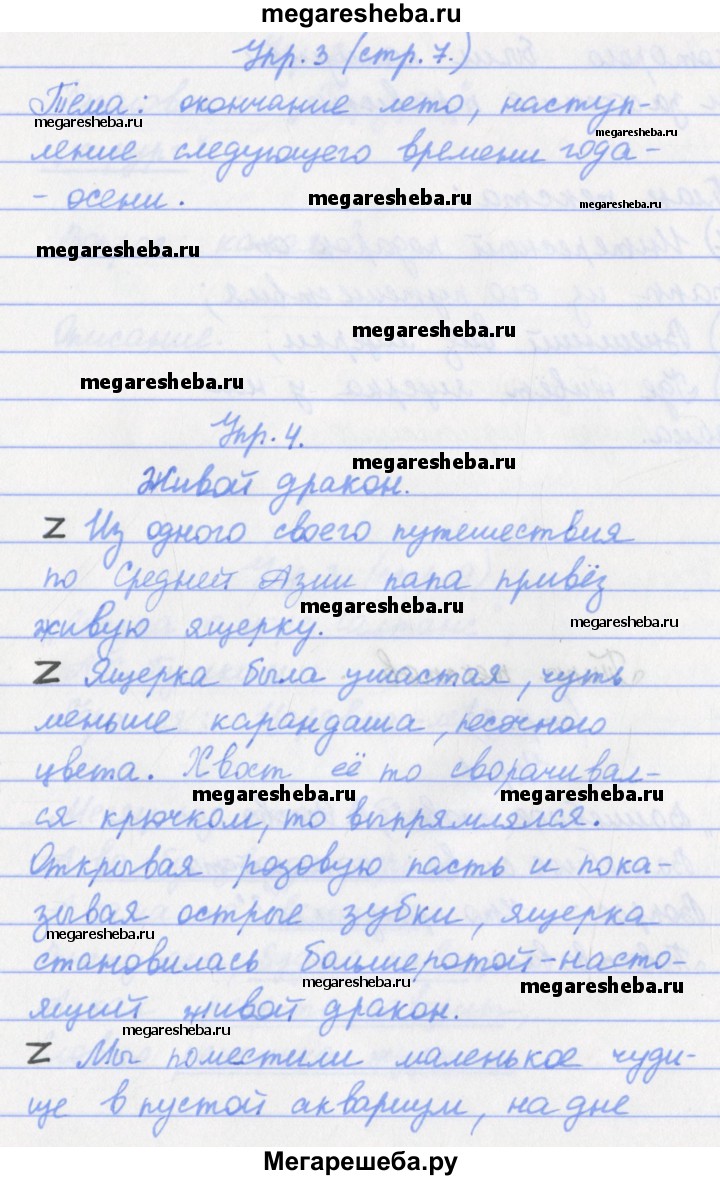 megaresheba.ru
Упр. 3 (стр. 7.)
Тема: окончание лето, наступ-
megaresheba.ru
megaresheba.ru
ление следующего времени года -
- осени.
megaresheba.ru
megaresheba.ru
megaresheba.ru
megaresheba.ru
megaresheba.ru
Упр. 4.
megaresheba.ru
Живой дракон.
Z Из одного своего путешествия
по Средней Азии папа привёз
megaresheba.ru
megaresheba.ru
живую ящерку.
Z Ящерка была ушастая, чуть
меньше карандаша, песочного
цвета. Хвост её то сворачивал-
megaresheba.ru
megaresheba.ru
ся крючком, то выпрямлялся.
Открывая розовую пасть и пока-
зывая острые зубки, ящерка
megaresheba.ru
становилась большеротой-насто-
megaresheba.ru
megaresheba.ru
ящий живой дракон.
megaresheba.ru
Z Мы поместили маленькое чуди-
ще в пустой аквариум, на дне
Мегарешеба.ру